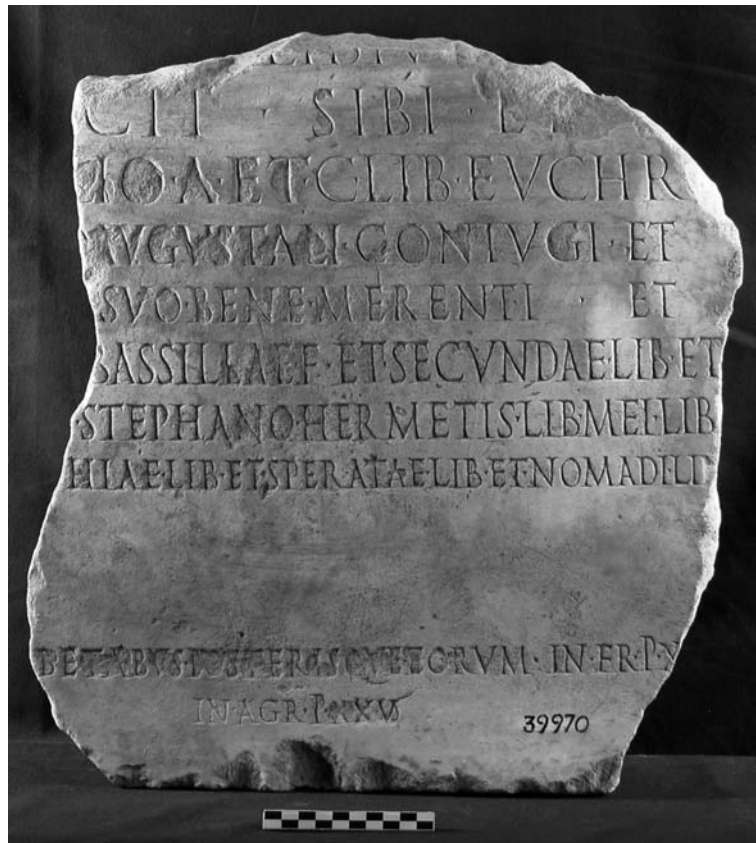 SIBI
ET·C·LIB·EVCHR
AVGVSTALI·CONIVGI·ET
SVO·BENE·MERENTI · ET
BASSILLAE·F·ET·SECVNDAE·LIB·ET
STEPHANO·HERMETIS·LIB·MEI·LIB
HIAE·LIB·ET·SPERATAE·LIB·ET·NOMADI·LI
BERTABVS·POSTERISQVE·EORVM·IN·FR·P·X
IN·AGR·P·XXV
39970